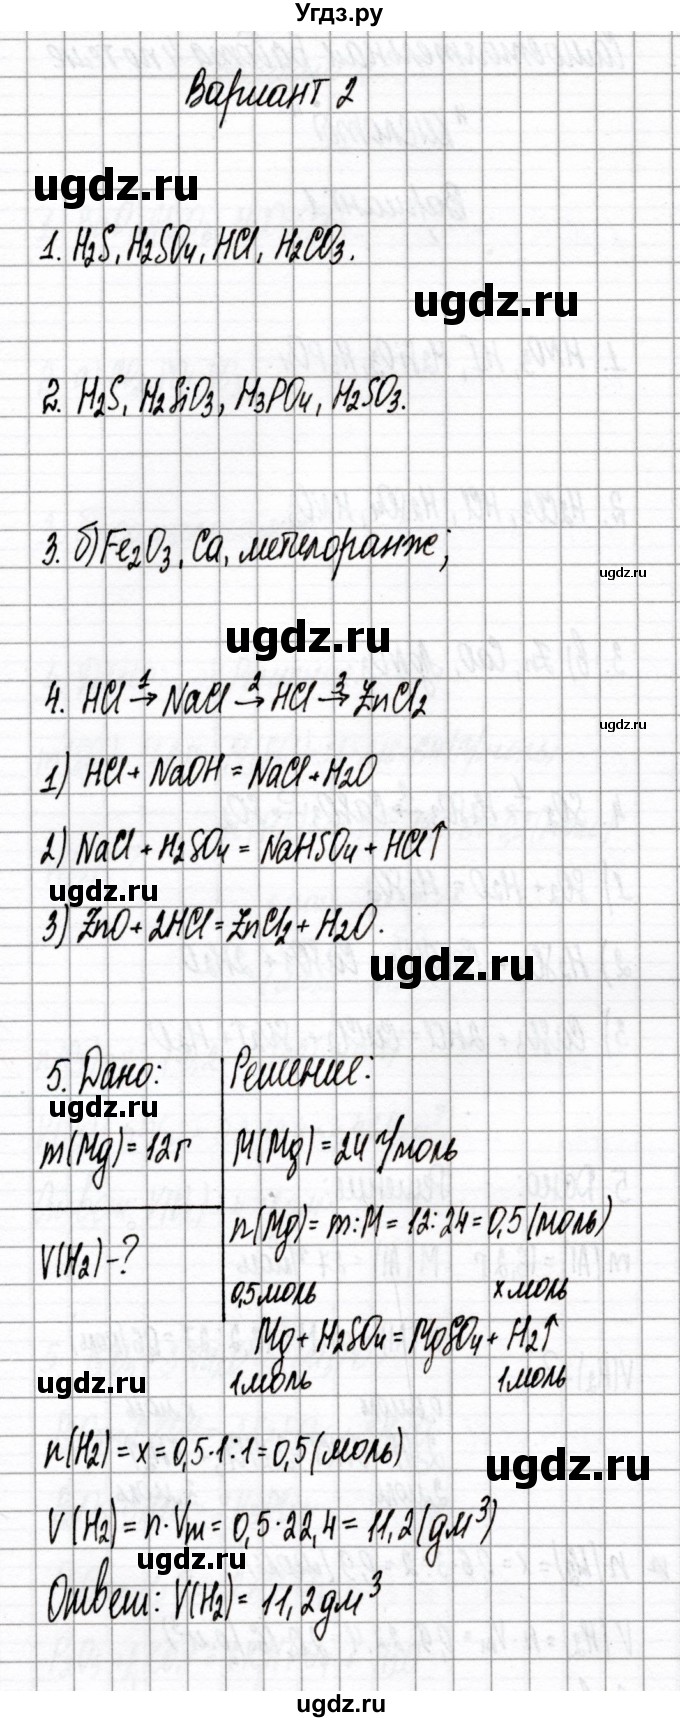 Угдз.ру
Вариант 2
ugdz.ru
1. H₂S, H₂SO₄, HCl, H₂CO₃.
ugdz.ru
2. H₂S, H₂SiO₃, H₃PO₄, H₂SO₃.
3. б) Fe₂O₃, Ca, метилоранж;
ugdz.ru
ugdz.ru
4. HCl →¹ NaCl →² HCl →³ ZnCl₂
ugdz.ru
1) HCl + NaOH = NaCl + H₂O
2) NaCl + H₂SO₄ = NaHSO₄ + HCl↑
ugdz.ru
3) ZnO + 2HCl = ZnCl₂ + H₂O.
ugdz.ru
5. Дано: Решение:
ugdz.ru
m(Mg) = 12 г M(Mg) = 24 г/моль
n(Mg) = m : M = 12 : 24 = 0,5 (моль)
V(H₂) - ?
0,5 моль x моль
Mg + H₂SO₄ = MgSO₄ + H₂↑
ugdz.ru
1 моль 1 моль
n(H₂) = x = 0,5 · 1 : 1 = 0,5 (моль)
ugdz.ru
V(H₂) = n · Vm = 0,5 · 22,4 = 11,2 (дм³)
ugdz.ru
Ответ: V(H₂) = 11,2 дм³
ugdz.ru